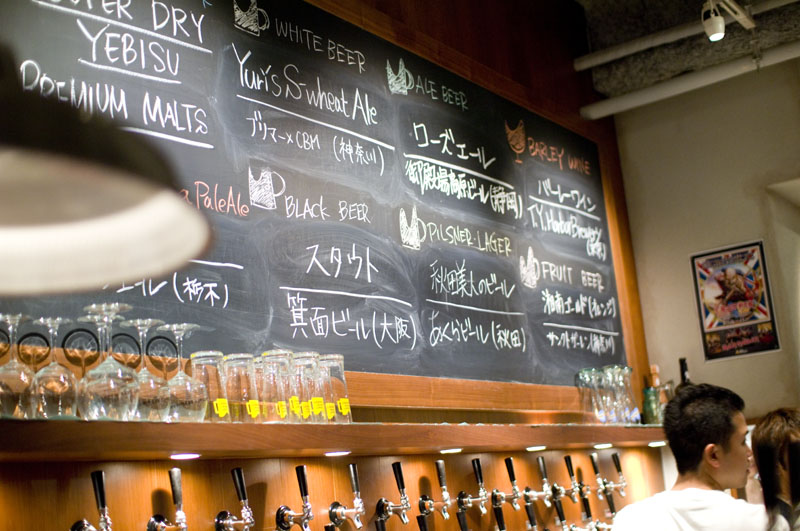 DRY
YEBISU
PREMIUM MALTS
PaleAle
(栃木)
WHITE BEER
Yuri's S-wheat Ale
ブリマー×CBM (神奈川)
BLACK BEER
スタウト
箕面ビール(大阪)
ALE BEER
ローズエール
御殿場高原ビール(静岡)
PILSNER・LAGER
秋田美人のビール
あくらビール(秋田)
BARLEY WINE
バーレーワイン
T.Y.Harbor Brewery
FRUIT BEER
湘南ゴールド(オレンジ)
サンクトガーレン(神奈川)